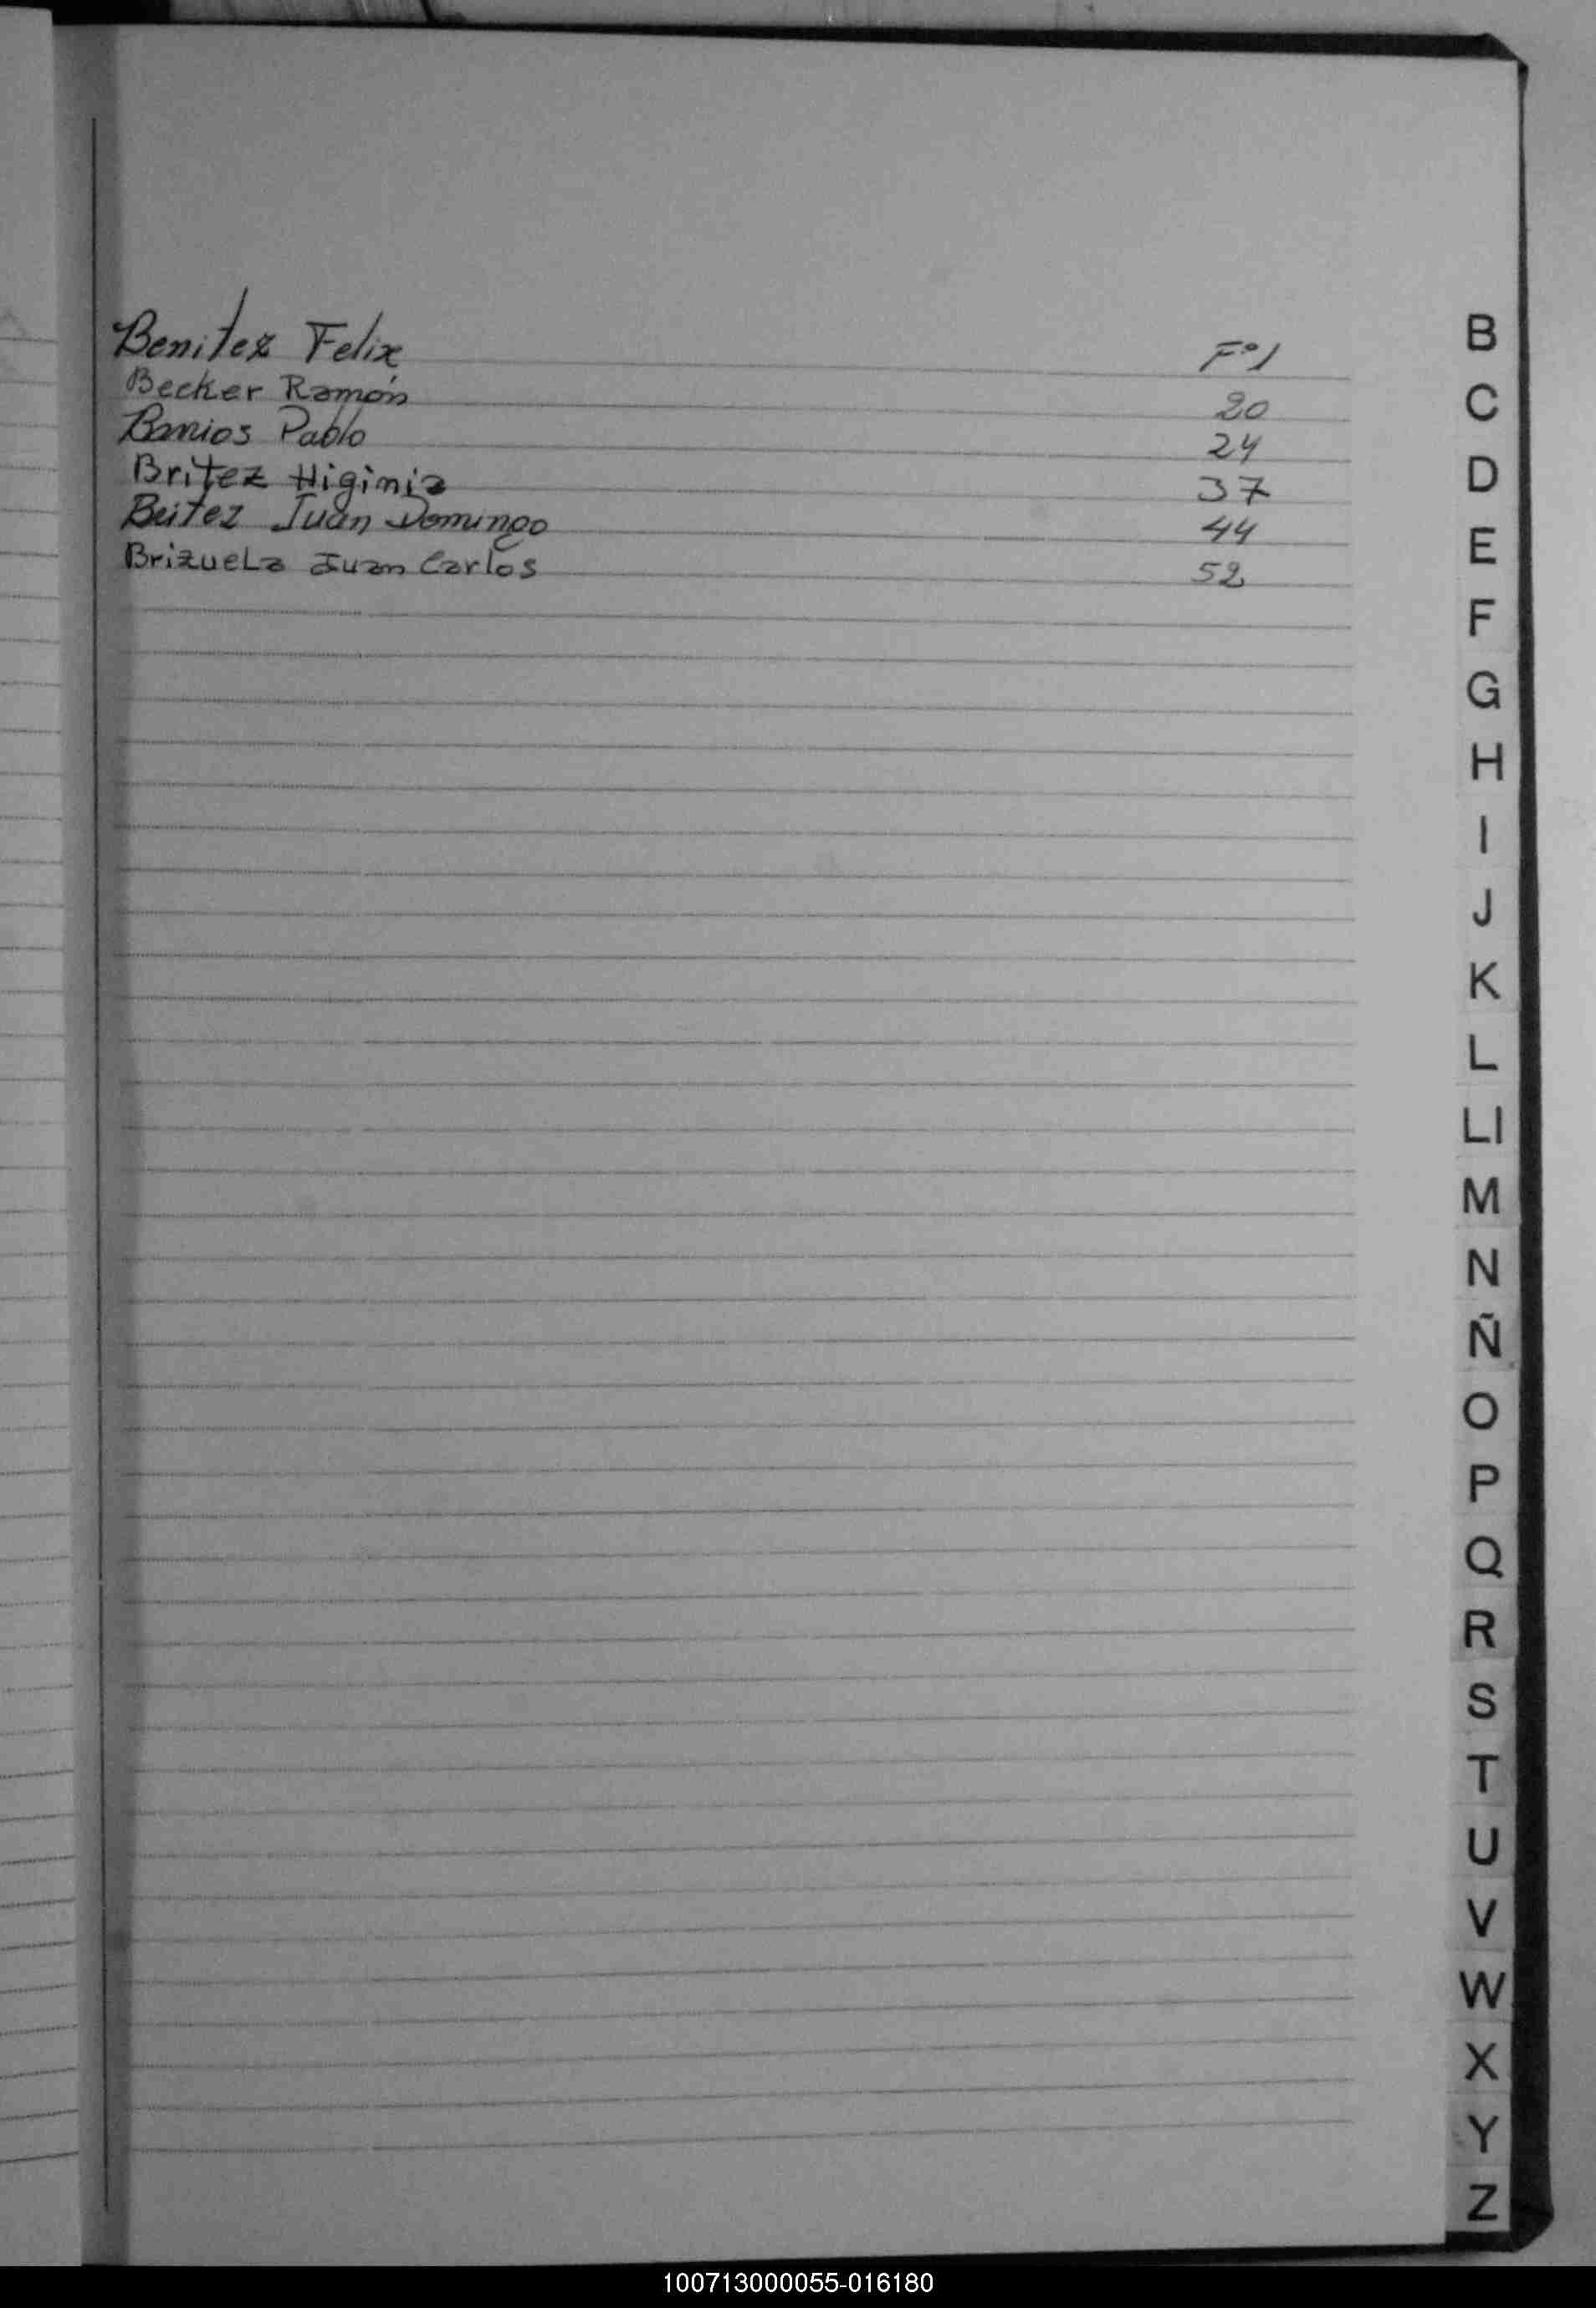 Benitez Felix Fº1
Becker Ramón 20
Barrios Pablo 24
Britez Higinia 37
Beitez Juan Domingo 44
Brizuela Juan Carlos 52
B
C
D
E
F
G
H
I
J
K
L
Ll
M
N
Ñ
O
P
Q
R
S
T
U
V
W
X
Y
Z
100713000055-016180